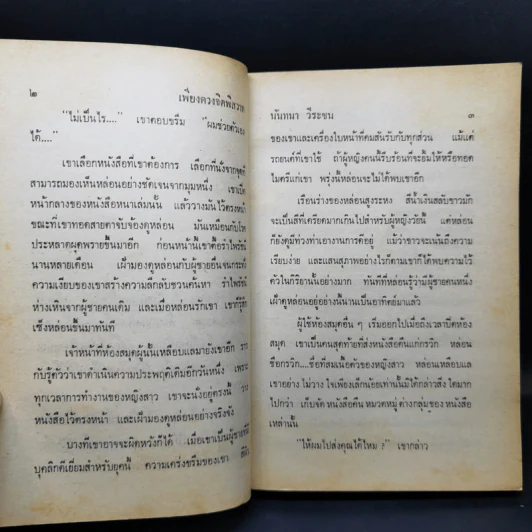 ๒
เพียงดวงจิตพิสวาท
"ไม่เป็นไร...." เขาตอบขรึม "ผมช่วยตัวเอง
ได้...."
เขาเลือกหนังสือที่เขาต้องการ เลือกที่นั่งจากจุดที่
สามารถมองเห็นหล่อนอย่างชัดเจนจากมุมหนึ่ง เขาเปิด
หน้ากลางของหนังสือหนาเล่มนั้น แล้ววางมันไว้ตรงหน้า
ขณะที่เขาทอดสายตาจับจ้องดูหล่อน มันเหมือนกับรำไพ
ประหลาดผุดพรายขึ้นมาอีก ก่อนหน้านี้เขาตื้อรำไพรัชนี
นานหลายเดือน เฝ้ามองดูหล่อนกับผู้ชายอื่นจนกระทั่ง
ความเงียบของเขาสร้างความลึกลับชวนค้นหา รำไพรัชนี
ห่างเหินจากผู้ชายคนเดิม และเมื่อหล่อนรักเขา เขาก็รู้สึก
เซ็งหล่อนขึ้นมาทันที
เจ้าหน้าที่ห้องสมุดผู้นั้นเหลือบแลมายังเขาอีก ราว
กับรู้ตัวว่าเขาดำเนินความประพฤติเดิมอีกวันหนึ่ง เพราะ
ทุกเวลาการทำงานของหญิงสาว เขาจะนั่งอยู่ตรงนี้ วาง
หนังสือไว้ตรงหน้า และเฝ้ามองดูหล่อนอย่างจริงจัง
บางทีเขาอาจจะผิดหวังก็ได้ เมื่อเขาเป็นผู้ชายที่มี
บุคลิกดีเยี่ยมสำหรับยุคนี้ ความเคร่งขรึมของเขา
นันทนา วีระชน
๓
ของเขาและเครื่องใบหน้าที่คมสันรับกับทุกส่วน แม้แต่
รถยนต์ที่เขาใช้ ถ้าผู้หญิงคนนี้รีบร้อนที่จะยิ้มให้หรือทอด
ไมตรีแก่เขา พรุ่งนี้หล่อนจะไม่ได้พบเขาอีก
เรือนร่างของหล่อนสูงระหง สีน้ำเงินสลับขาวมัก
จะเป็นสีที่เครียดมากเกินไปสำหรับผู้หญิงวัยนี้ แต่หล่อน
ก็ยังดูมีท่วงท่าเอางานการดีอยู่ แม้ว่าขาวจะเน้นถึงความ
เรียบง่าย และแสนสุภาพอย่างไรก็ตามเขาก็ได้พบความไว้
ตัวในกิริยานั้นอย่างมาก ทันทีที่หล่อนรู้ว่ามีผู้ชายคนหนึ่ง
เฝ้าดูหล่อนอยู่อย่างนี้นานเป็นอาทิตย์มาแล้ว
ผู้ใช้ห้องสมุดอื่น ๆ เริ่มออกไปเมื่อถึงเวลาปิดห้อง
สมุด เขาเป็นคนสุดท้ายที่ส่งหนังสือคืนแก่กรวิก หล่อน
ชื่อกรวิก....ชื่อที่สมเนื้อตัวของหญิงสาว หล่อนเหลือบแล
เขาอย่าง ไม่วาง ใจเพียงเล็กน้อยเท่านั้นมิได้กล่าวสิ่ง ใดมาก
ไปกว่า เก็บจัด หนังสือคืน หมวดหมู่ ต่างกลุ่มของ หนังสือ
เหล่านั้น
"ให้ผมไปส่งคุณได้ไหม ?" เขากล่าว